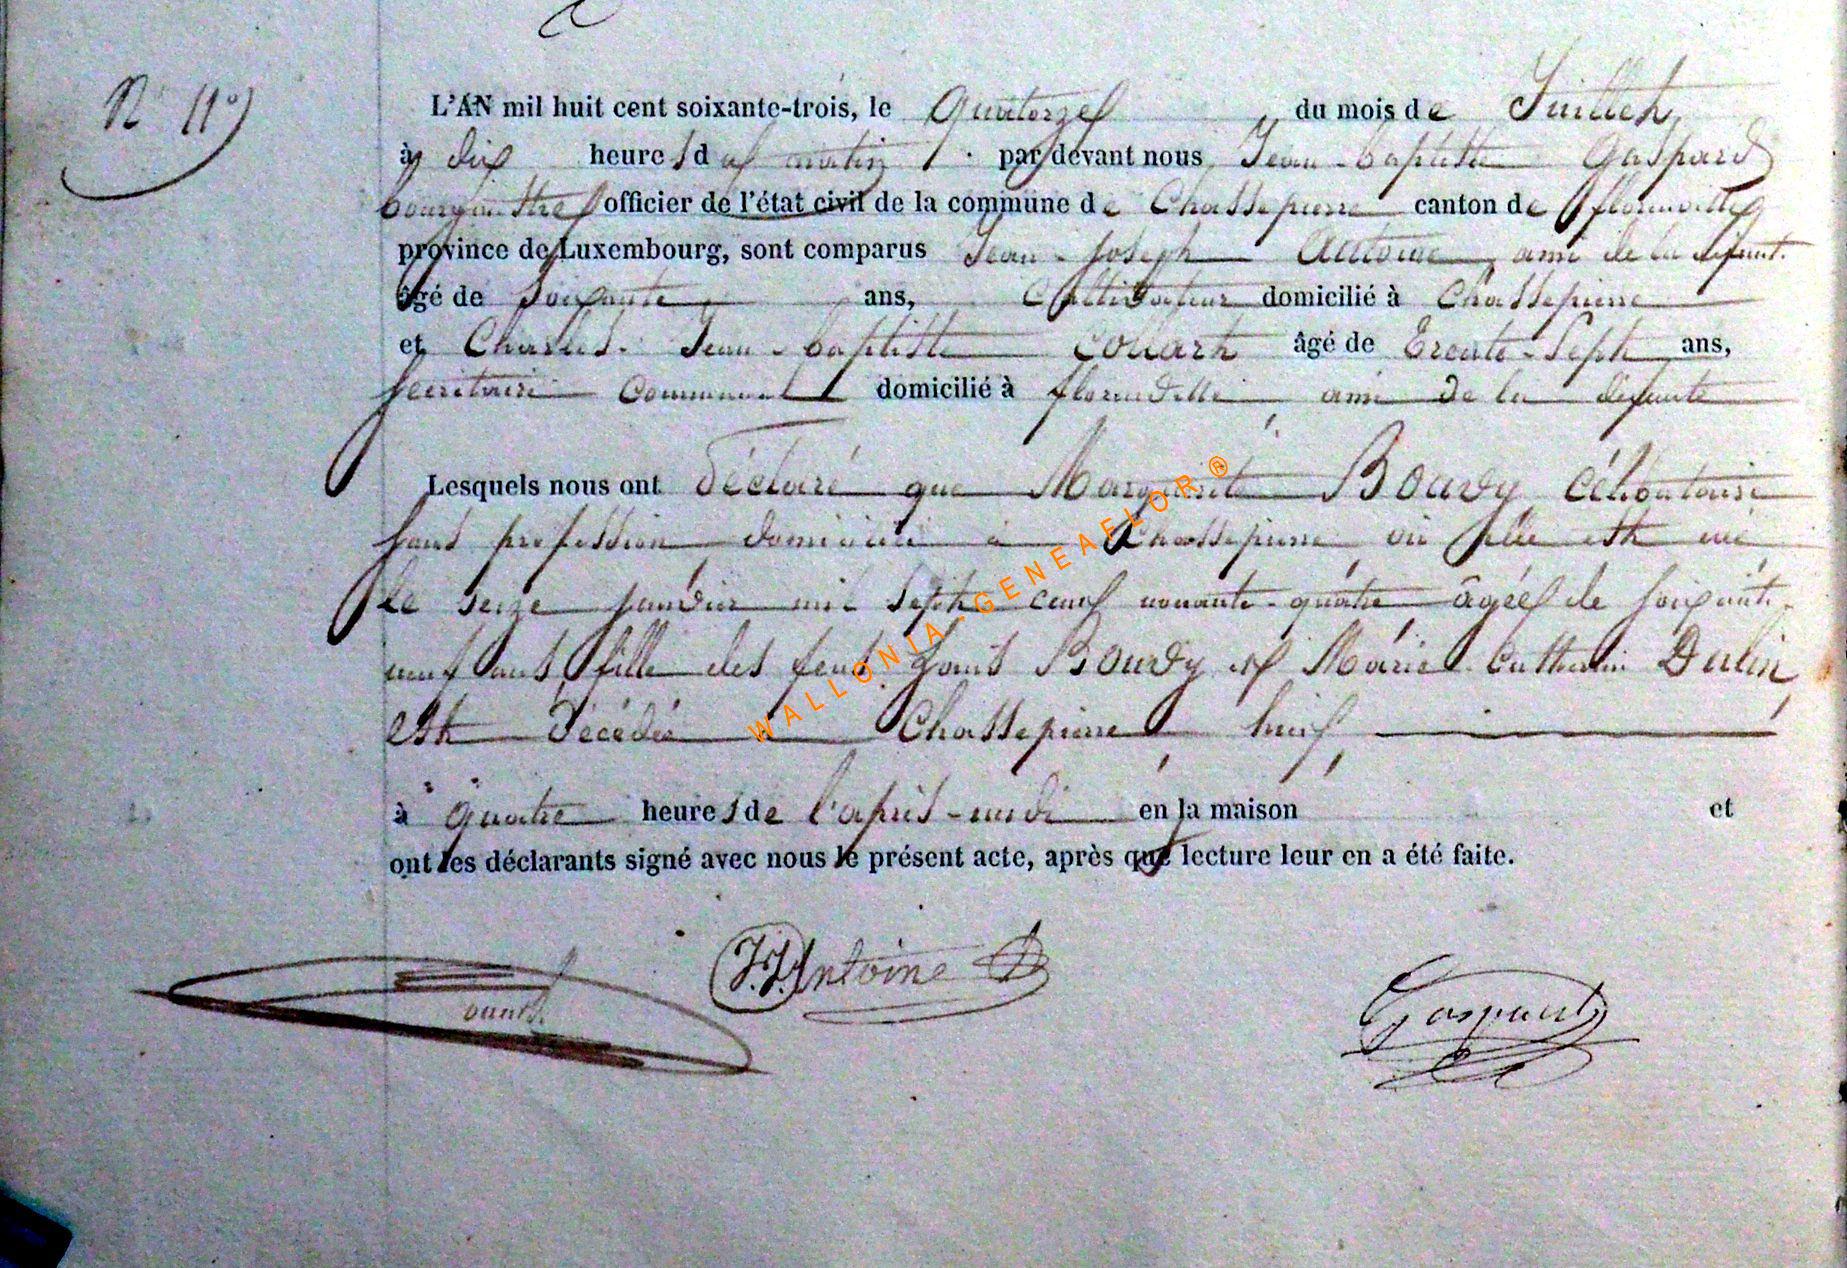 N° 11
L'AN mil huit cent soixante-trois, le Quatorze du mois de Juillet
à dix heures du matin par devant nous Jean-baptiste Gaspard
bourgmestre officier de l'état civil de la commune de Chassepierre canton de florenville
province de Luxembourg, sont comparus Jean-Joseph Antoine ami de la défunt.
âgé de Soixante ans, Cultivateur domicilié à Chassepierre
et Charles-Jean-baptiste Collart âgé de Trente-Sept ans,
Secrétaire Communal domicilié à florenville ami de la défunte
Lesquels nous ont déclaré que Marguerite Bouvy Célibataire
sans profession domiciliée à Chassepierre où elle est née
le seize janvier mil sept cent nonante-quatre âgée de soixante-
neuf ans fille des feus Louis Bouvy et Marie-Catherine
est décédée à Chassepierre hier
à quatre heures de l'après-midi en la maison et
ont les déclarants signé avec nous le présent acte, après que lecture leur en a été faite.
J.J. Antoine
Gaspard
WALLONIA-GENEAFLOR ®